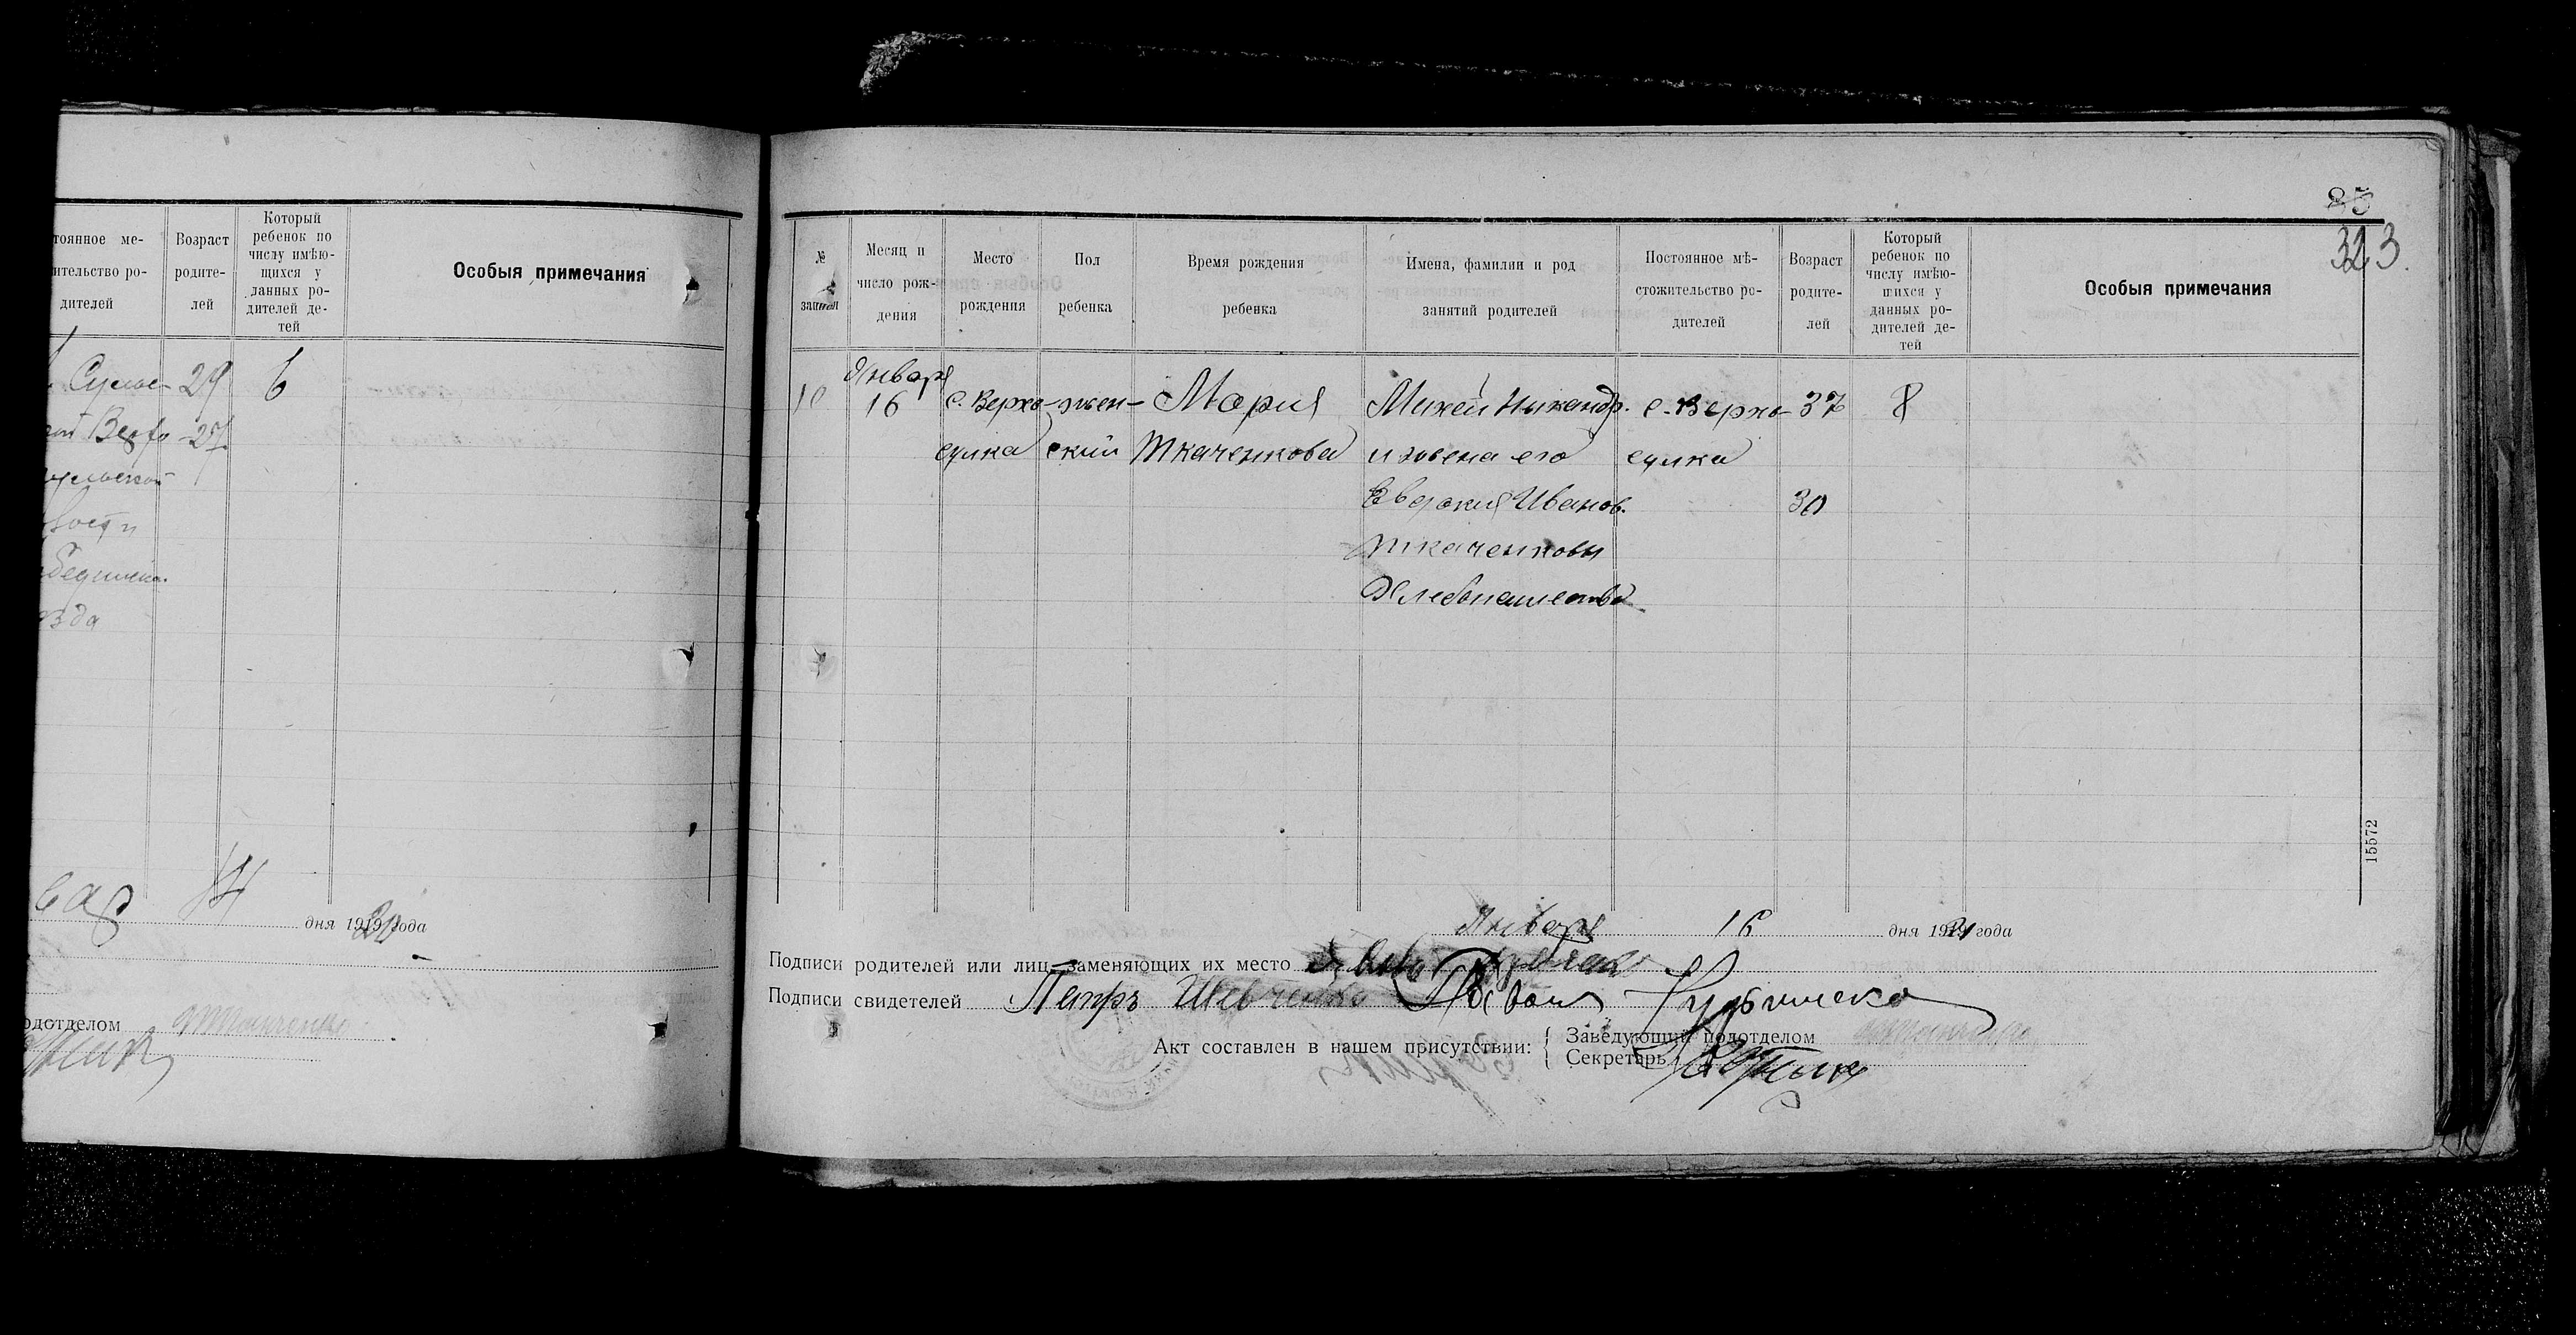 тоянное ме-
ительство ро-
дителей
Возраст
родите-
лей
Который
ребенок по
числу имѣю-
щихся у
данных ро-
дителей де-
тей
Особыя примечания
29
6
27
14
дня 1920 года
одотделом
85
323.
№
записи
Месяц и
число рож-
дения
Место
рождения
Пол
ребенка
Время рождения
ребенка
Имена, фамилии и род
занятий родителей
Постоянное мѣ-
стожительство ро-
дителей
Возраст
родите-
лей
Который
ребенок по
числу имѣю-
щихся у
данных ро-
дителей де-
тей
Особыя примечания
10
Января
16
с. Верхо-
сулка
жен-
ский
Мария
Ткаченкова
Михей Никандр.
и жена его
Евдокия Иванов.
Ткаченковы
Хлебопашество
с. Верхо-
сулка
37
30
8
15572
Января 16 дня 19 года
Подписи родителей или лиц заменяющих их место
Подписи свидетелей Петръ Шевченко
Акт составлен в нашем присутствии:
Заведующий подотделом
Секретарь